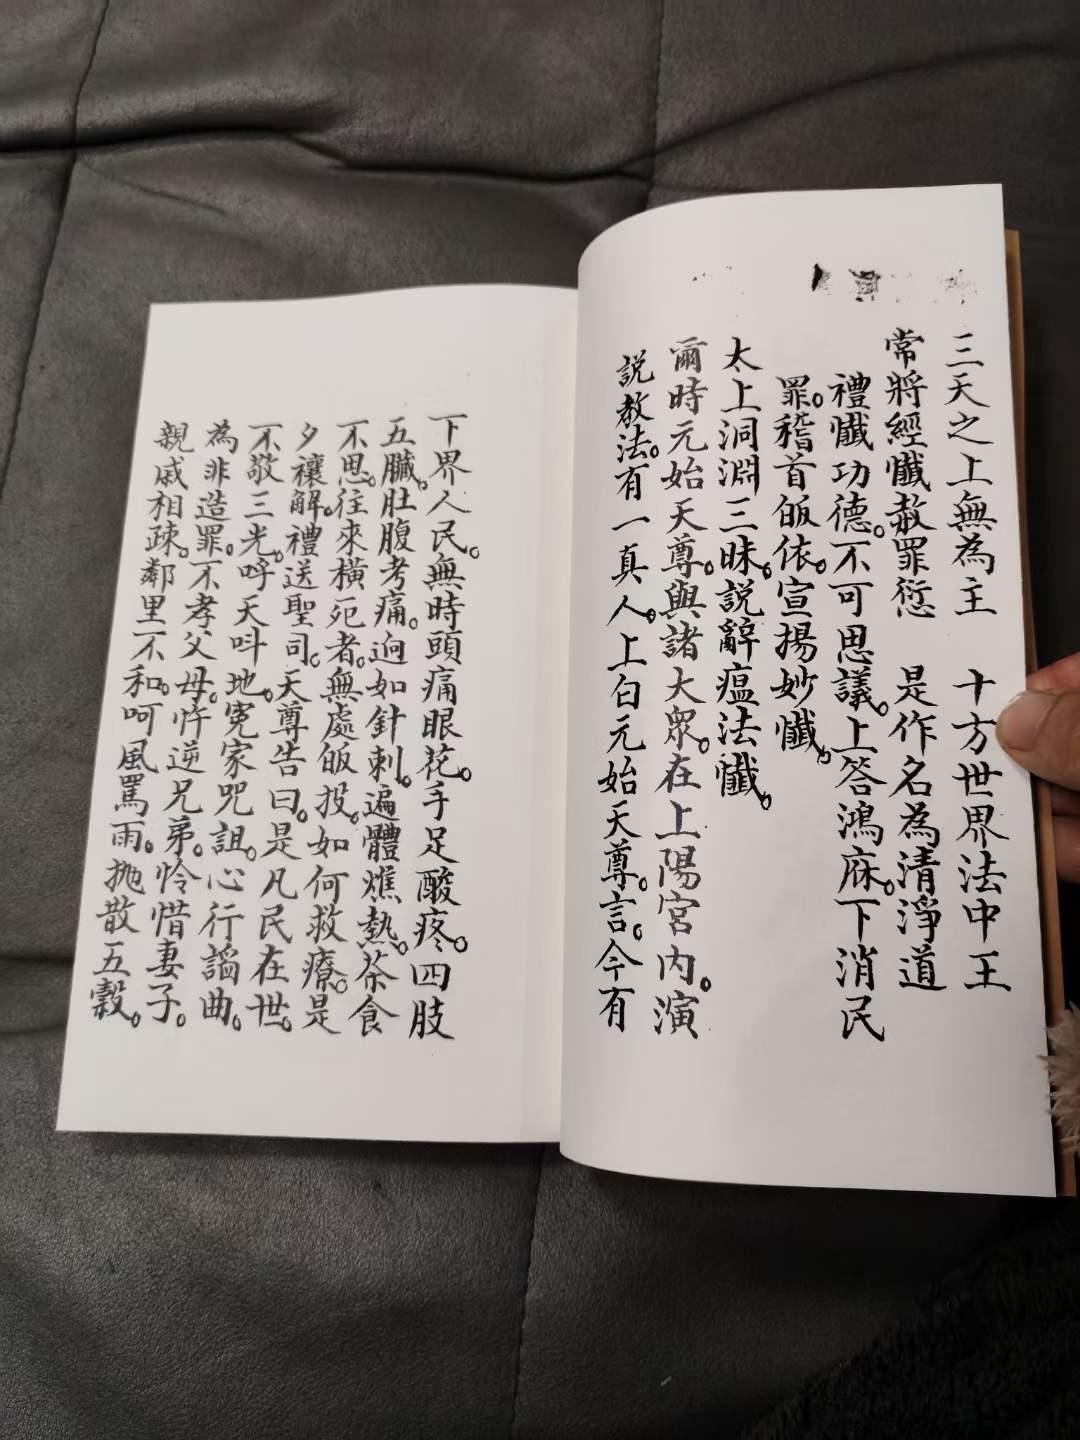 三天之上無為主　十方世界法中王
常將經懺赦罪愆　是作名為清淨道
禮懺功德。不可思議。上答鴻庥。下消民
罪。稽首皈依。宣揚妙懺。
太上洞淵三昧。說辭瘟法懺。
爾時元始天尊。與諸大眾。在上陽宮內。演
說教法。有一真人。上白元始天尊。言。今有
下界人民。無時頭痛眼花。手足酸疼。四肢
五臟。肚腹考痛。逈如針刺。遍體燋熱。茶食
不思。往來橫死者。無處皈投。如何救療。是
夕禳解。禮送聖司。天尊告曰。是凡民在世。
不敬三光。呼天呌地。冤家咒詛。心行謟曲。
為非造罪。不孝父母。忤逆兄弟。怜惜妻子。
親戚相疎。鄰里不和。呵風罵雨。拋散五穀。